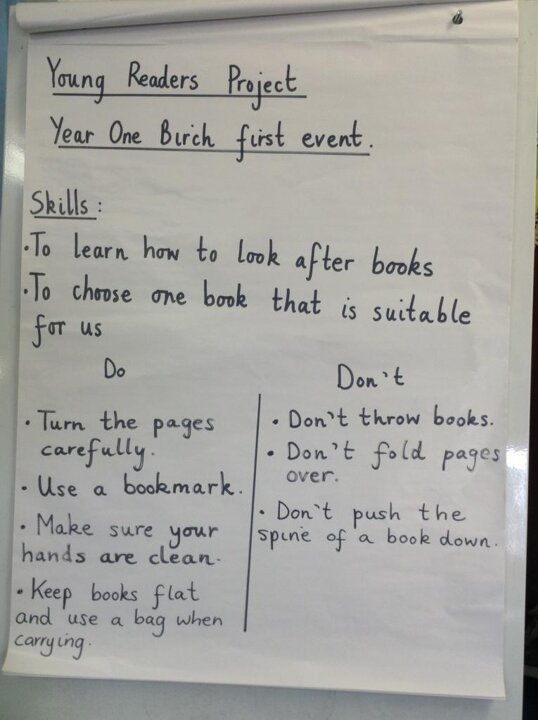 Young Readers Project
Year One Birch first event.
Skills:
·To learn how to look after books
·To choose one book that is suitable
for us
Do
· Turn the pages
carefully.
· Use a bookmark.
· Make sure your
hands are clean.
· Keep books flat
and use a bag when
carrying.
Don't
· Don't throw books.
· Don't fold pages
over.
· Don't push the
spine of a book down.